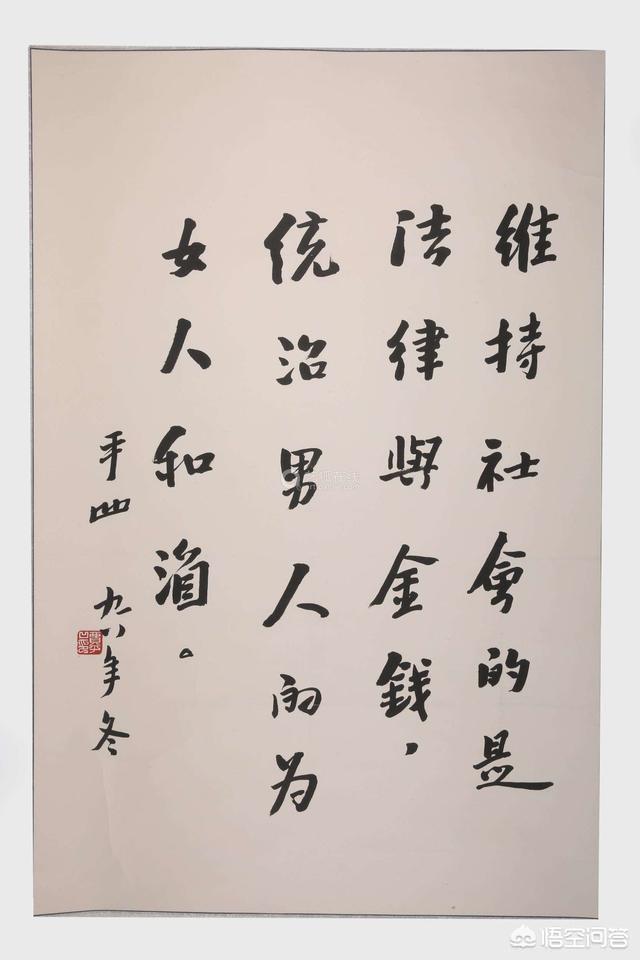 维持社會的是
法律與金錢，
统治男人的为
女人和酒。
平凹 九八年冬
悟空问答